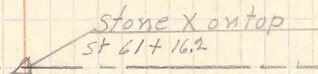 stone X on top
st 61 + 16.2